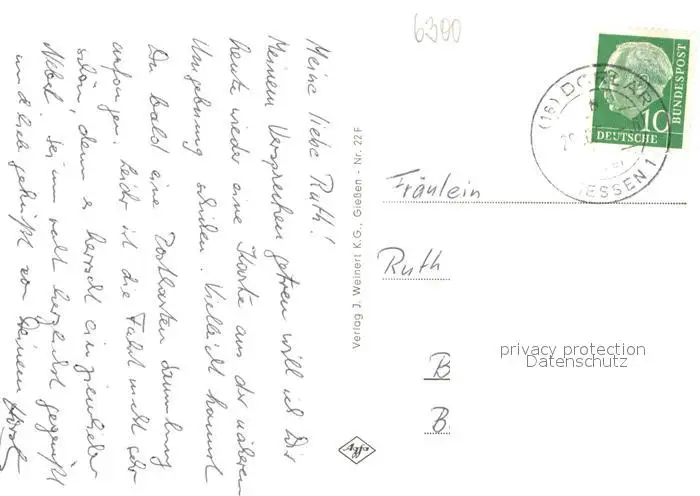 6300
Meine liebe Ruth!
Meinem Versprechen getreu will ich Dir
heute wieder eine Karte aus der näheren
Umgebung schicken. Vielleicht kannst
Du bald eine Postkarten Sammlung
anfangen. Leider ist die Fahrt nicht sehr
schön, denn es herrscht ein ziemlicher
Nebel. Sei nun recht herzlich gegrüßt
und lieb geküßt von Deinem Horst
Verlag J. Weinert K.G., Gießen - Nr. 22 F
Fräulein
Ruth
B
B.
(16) DORLAR
ESSEN 1
10
DEUTSCHE
BUNDESPOST
privacy protection
Datenschutz